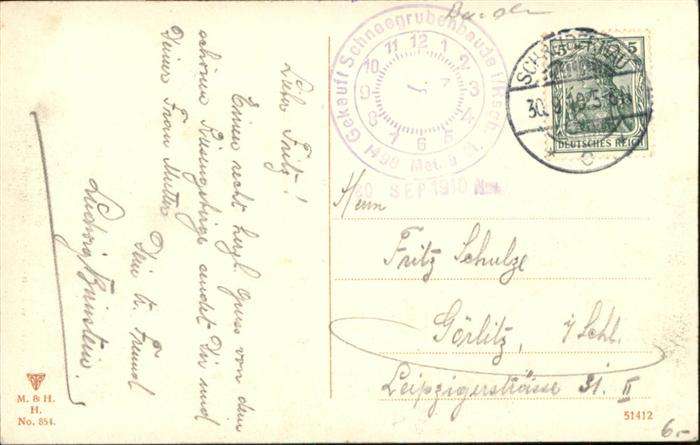 Lieber Fritz!
Einen recht herzl. Gruss von dem
schönen Riesengebirge sendet Dir und
Deiner Frau Mutter
Dein tr. Freund
Ludwig
M. & H.
H.
No. 854.
Gekauft Schneegrubenbaude i/Rsgb.
10 11 12 1 2 3 4 5 6 7 8 9
1490 Met. ü. M.
30 SEP 1910 Nm.
5 5
DEUTSCHES REICH
SCHREIBERHAU
30.9.10.5-6N
c
Herrn
Fritz Schulze
Görlitz, i/Schl.
Leipzigerstrasse 31. II
51412
6.-